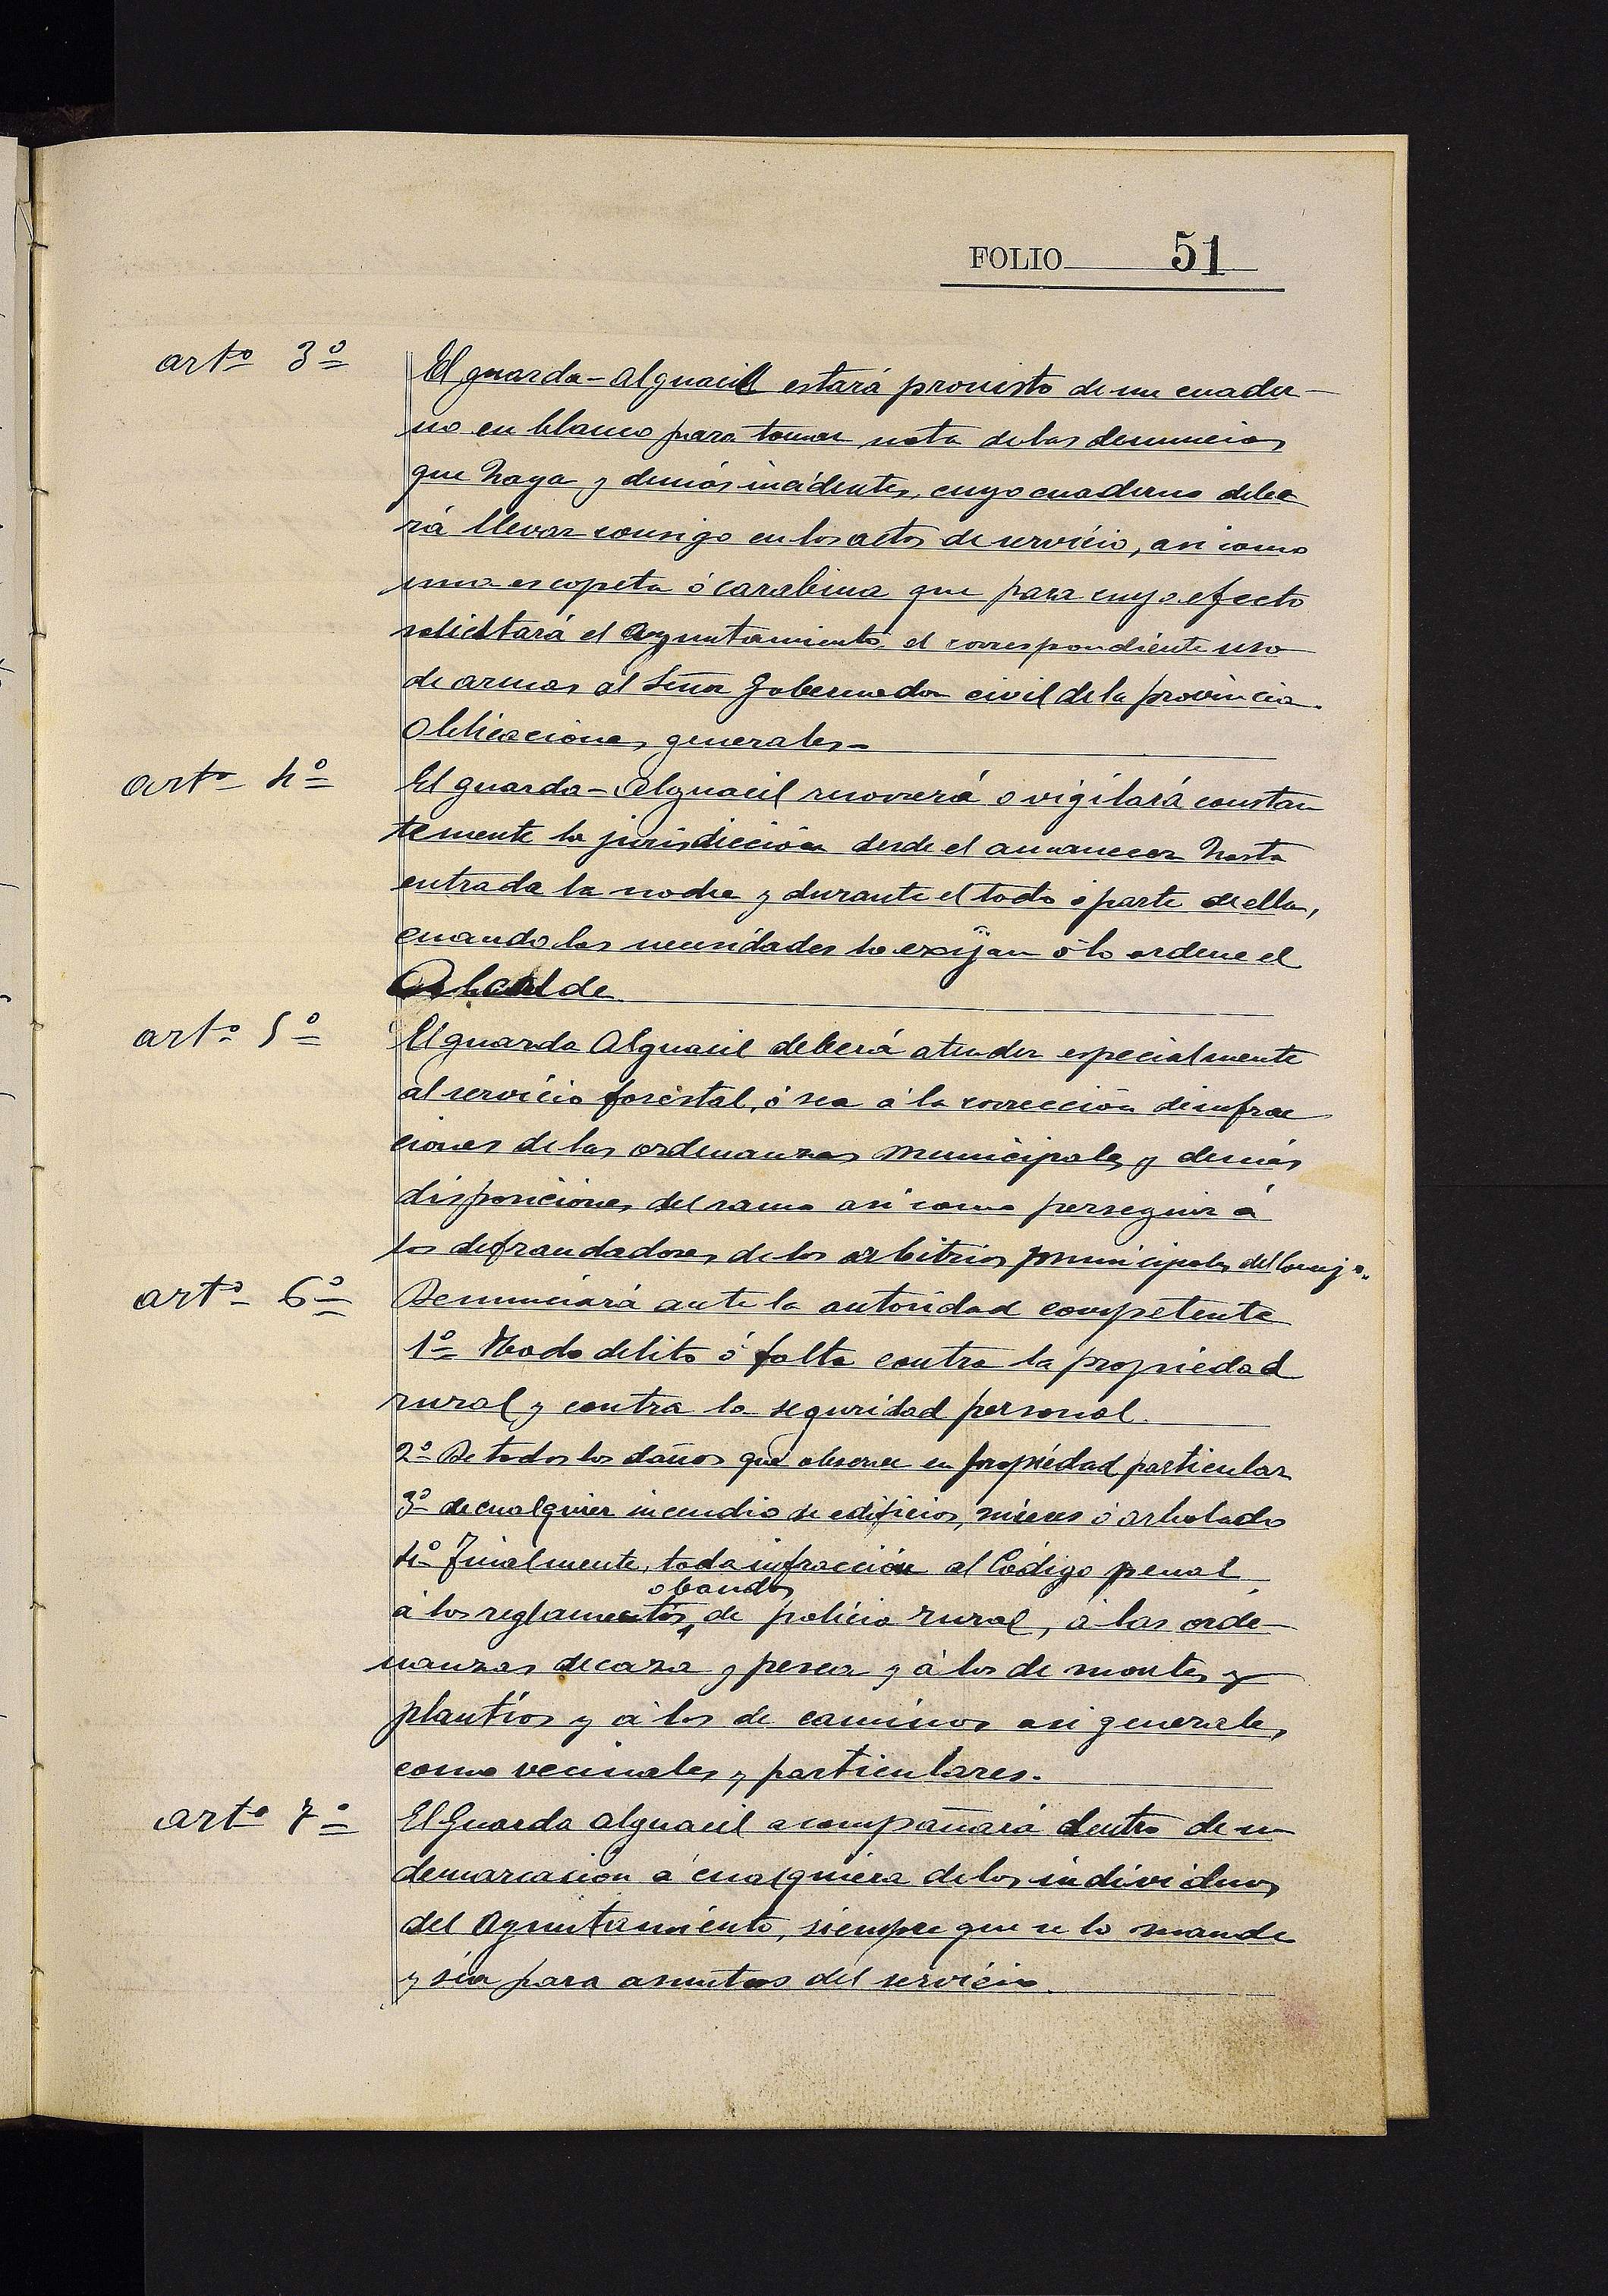 FOLIO 51
artº 3º
El guarda-alguacil estará provisto de un cuader-
no en blanco para tomar nota de las denuncias
que haga y demás incidentes, cuyo cuaderno debe
rá llevar consigo en los actos de servicio, asi como
una escopeta ó carabina que para cuyo efecto
solicitará el Ayuntamiento, el correspondiente uso
de armas al Señor Gobernador civil de la provincia.
Obligaciones generales.-
artº 4º
El guarda-Alguacil recorrerá o vigilará constan
temente la jurisdicción desde el amanecer hasta
entrada la noche y durante el todo ó parte de ella,
cuando las necesidades lo exijan ó lo ordene el
Alcalde
artº 5º
El guarda Alguacil deberá atender especialmente
al servicio forestal, ó sea á la corrección de infrac
ciones de las ordenanzas municipales y demás
disposiciones del ramo asi como perseguir á
los defraudadores de los arbitrios municipales del Concejo.
artº 6º
Denunciará ante la autoridad competente
1º Todo delito ó falta contra la propiedad
rural y contra la seguridad personal.
2º De todos los daños que observe en propiedad particular
3º de cualquier incendio de edificios, mieses ó arbolado
4º Finalmente, toda infracción al Código penal
o bandos
á los reglamentos, de policia rural, á las orde-
nanzas de caza y pesca y á los de montes y
plantíos y á los de caminos asi generales,
como vecinales y particulares.
artº 7º
El Guarda alguacil acompañará dentro de su
demarcacion á cualquiera de los individuos
del Ayuntamiento, siempre que se lo mande
y sea para asuntos del servicio.